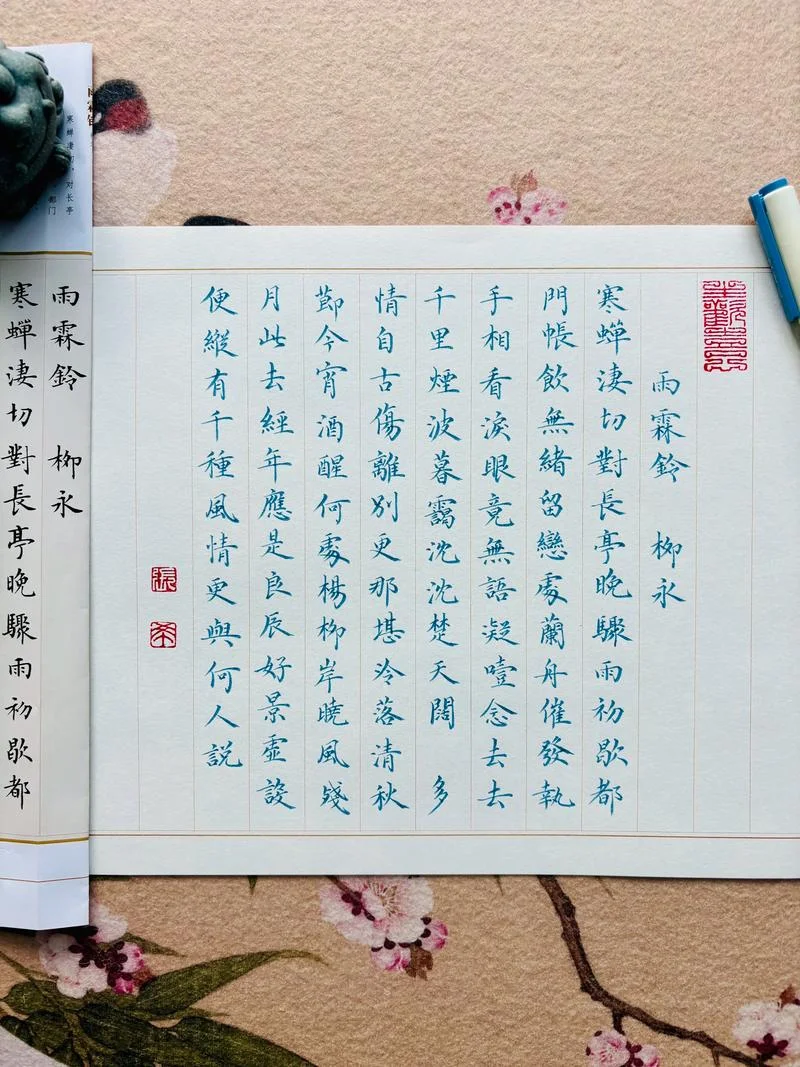 雨霖鈴 柳永
寒蟬淒切對長亭晚驟雨初歇都
門帳飲無緒留戀處蘭舟催發執
手相看淚眼竟無語凝噎念去去
千里煙波暮靄沈沈楚天闊 多
情自古傷離別更那堪冷落清秋
節今宵酒醒何處楊柳岸曉風殘
月此去經年應是良辰好景虛設
便縱有千種風情更與何人説
寒蝉凄切，对长亭
都门
雨霖鈴 柳永
寒蟬淒切對長亭晚驟雨初歇都